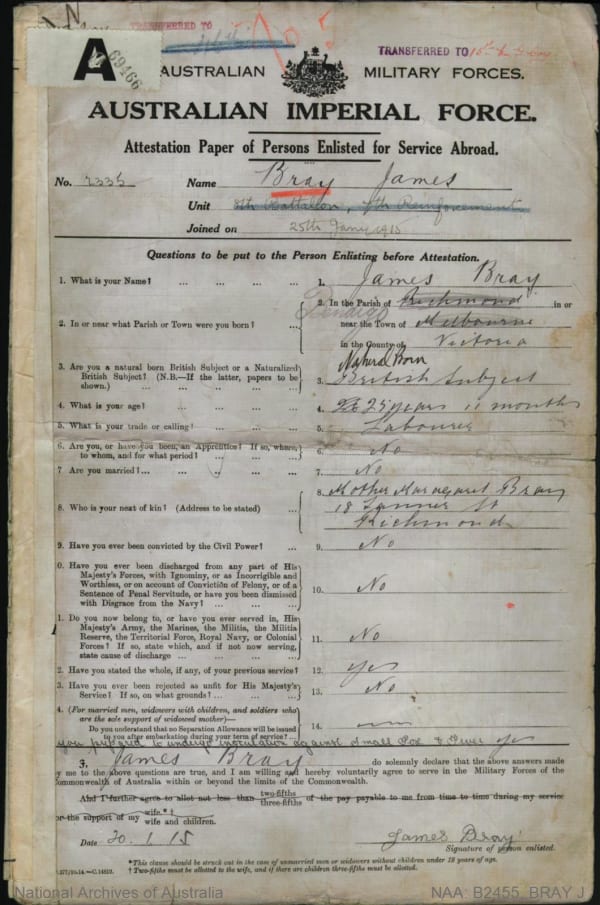 TRANSFERRED TO
No 5
TRANSFERRED TO 15th
A
69466
AUSTRALIAN MILITARY FORCES.
AUSTRALIAN IMPERIAL FORCE.
Attestation Paper of Persons Enlisted for Service Abroad.
No. 2335 Name Bray James
Unit 8th Battalion, 7th Reinforcement
Joined on 25th Jany 1915
Questions to be put to the Person Enlisting before Attestation.
1. What is your Name? ... ... ... ... 1. James Bray
Bendigo
2. In or near what Parish or Town were you born? ... 2. In the Parish of Richmond in or
near the Town of Melbourne
in the County of Victoria
3. Are you a natural born British Subject or a Naturalized
British Subject? (N.B.—If the latter, papers to be
shown.) ... ... ... ... ... 3. Natural Born
British Subject
4. What is your age? ... ... ... ... 4. 25 years 11 months
5. What is your trade or calling? ... ... ... 5. Labourer
6. Are you, or have you been, an Apprentice? If so, where,
to whom, and for what period? ... ... ... 6. No
7 Are you married? ... ... ... ... 7. No
8. Who is your next of kin? (Address to be stated) ... 8. Mother Margaret Bray
18 Tanner St
Richmond
9. Have you ever been convicted by the Civil Power? ... 9. No
0. Have you ever been discharged from any part of His
Majesty's Forces, with Ignominy, or as Incorrigible and
Worthless, or on account of Conviction of Felony, or of a
Sentence of Penal Servitude, or have you been dismissed
with Disgrace from the Navy? ... ... ... 10. No
1. Do you now belong to, or have you ever served in, His
Majesty's Army, the Marines, the Militia, the Militia
Reserve, the Territorial Force, Royal Navy, or Colonial
Forces? If so, state which, and if not now serving,
state cause of discharge ... ... ... ... 11. No
2. Have you stated the whole, if any, of your previous service? 12. yes
3. Have you ever been rejected as unfit for His Majesty's
Service? If so, on what grounds? ... ... ... 13. No
4. (For married men, widowers with children, and soldiers who
are the sole support of widowed mother)—
Do you understand that no Separation Allowance will be issued
to you after embarkation during your term of service? ... 14.
you prepared to undergo inoculation against small Pox & Fever yes
I, James Bray do solemnly declare that the above answers made
by me to the above questions are true, and I am willing and hereby voluntarily agree to serve in the Military Forces of the
Commonwealth of Australia within or beyond the limits of the Commonwealth.
And I further agree to allot not less than two-fifths three-fifths of the pay payable to me from time to time during my service
for the support of my wife.* wife and children. †
Date 20.1.15 James Bray
Signature of person enlisted.
*This clause should be struck out in the case of unmarried men or widowers without children under 18 years of age.
† Two-fifths must be allotted to the wife, and if there are children three-fifths must be allotted.
National Archives of Australia NAA: B2455, BRAY J